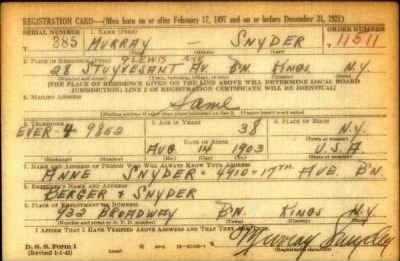 REGISTRATION CARD—(Men born on or after February 17, 1897 and on or before December 31, 1921)
SERIAL NUMBER 1. NAME (Print) ORDER NUMBER
285 MURRAY — SNYDER 11511
2. PLACE OF RESIDENCE (Print) 9 LEWIS
28 STUYVESANT AV. B'N. KINGS N.Y.
[THE PLACE OF RESIDENCE GIVEN ON THE LINE ABOVE WILL DETERMINE LOCAL BOARD
JURISDICTION; LINE 2 OF REGISTRATION CERTIFICATE WILL BE IDENTICAL]
3. MAILING ADDRESS
Same
4. TELEPHONE 5. AGE IN YEARS 6. PLACE OF BIRTH
EVER-4 9852 38 N.Y.
DATE OF BIRTH (Town or county)
AUG. 14 1903 U.S.A
(Exchange) (Number) (Mo.) (Day) (Yr.) (State or country)
7. NAME AND ADDRESS OF PERSON WHO WILL ALWAYS KNOW YOUR ADDRESS
ANNE SNYDER - 4910 - 17TH AVE. B'N.
8. EMPLOYER'S NAME AND ADDRESS
BERGER & SNYDER
9. PLACE OF EMPLOYMENT OR BUSINESS
932 BROADWAY B'N. KINGS N.Y.
I AFFIRM THAT I HAVE VERIFIED ABOVE ANSWERS AND THAT THEY ARE TRUE.
D. S. S. Form 1
(Revised 1-1-42) Murray Snyder